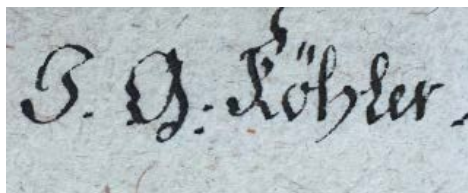 J. G. Köhler.